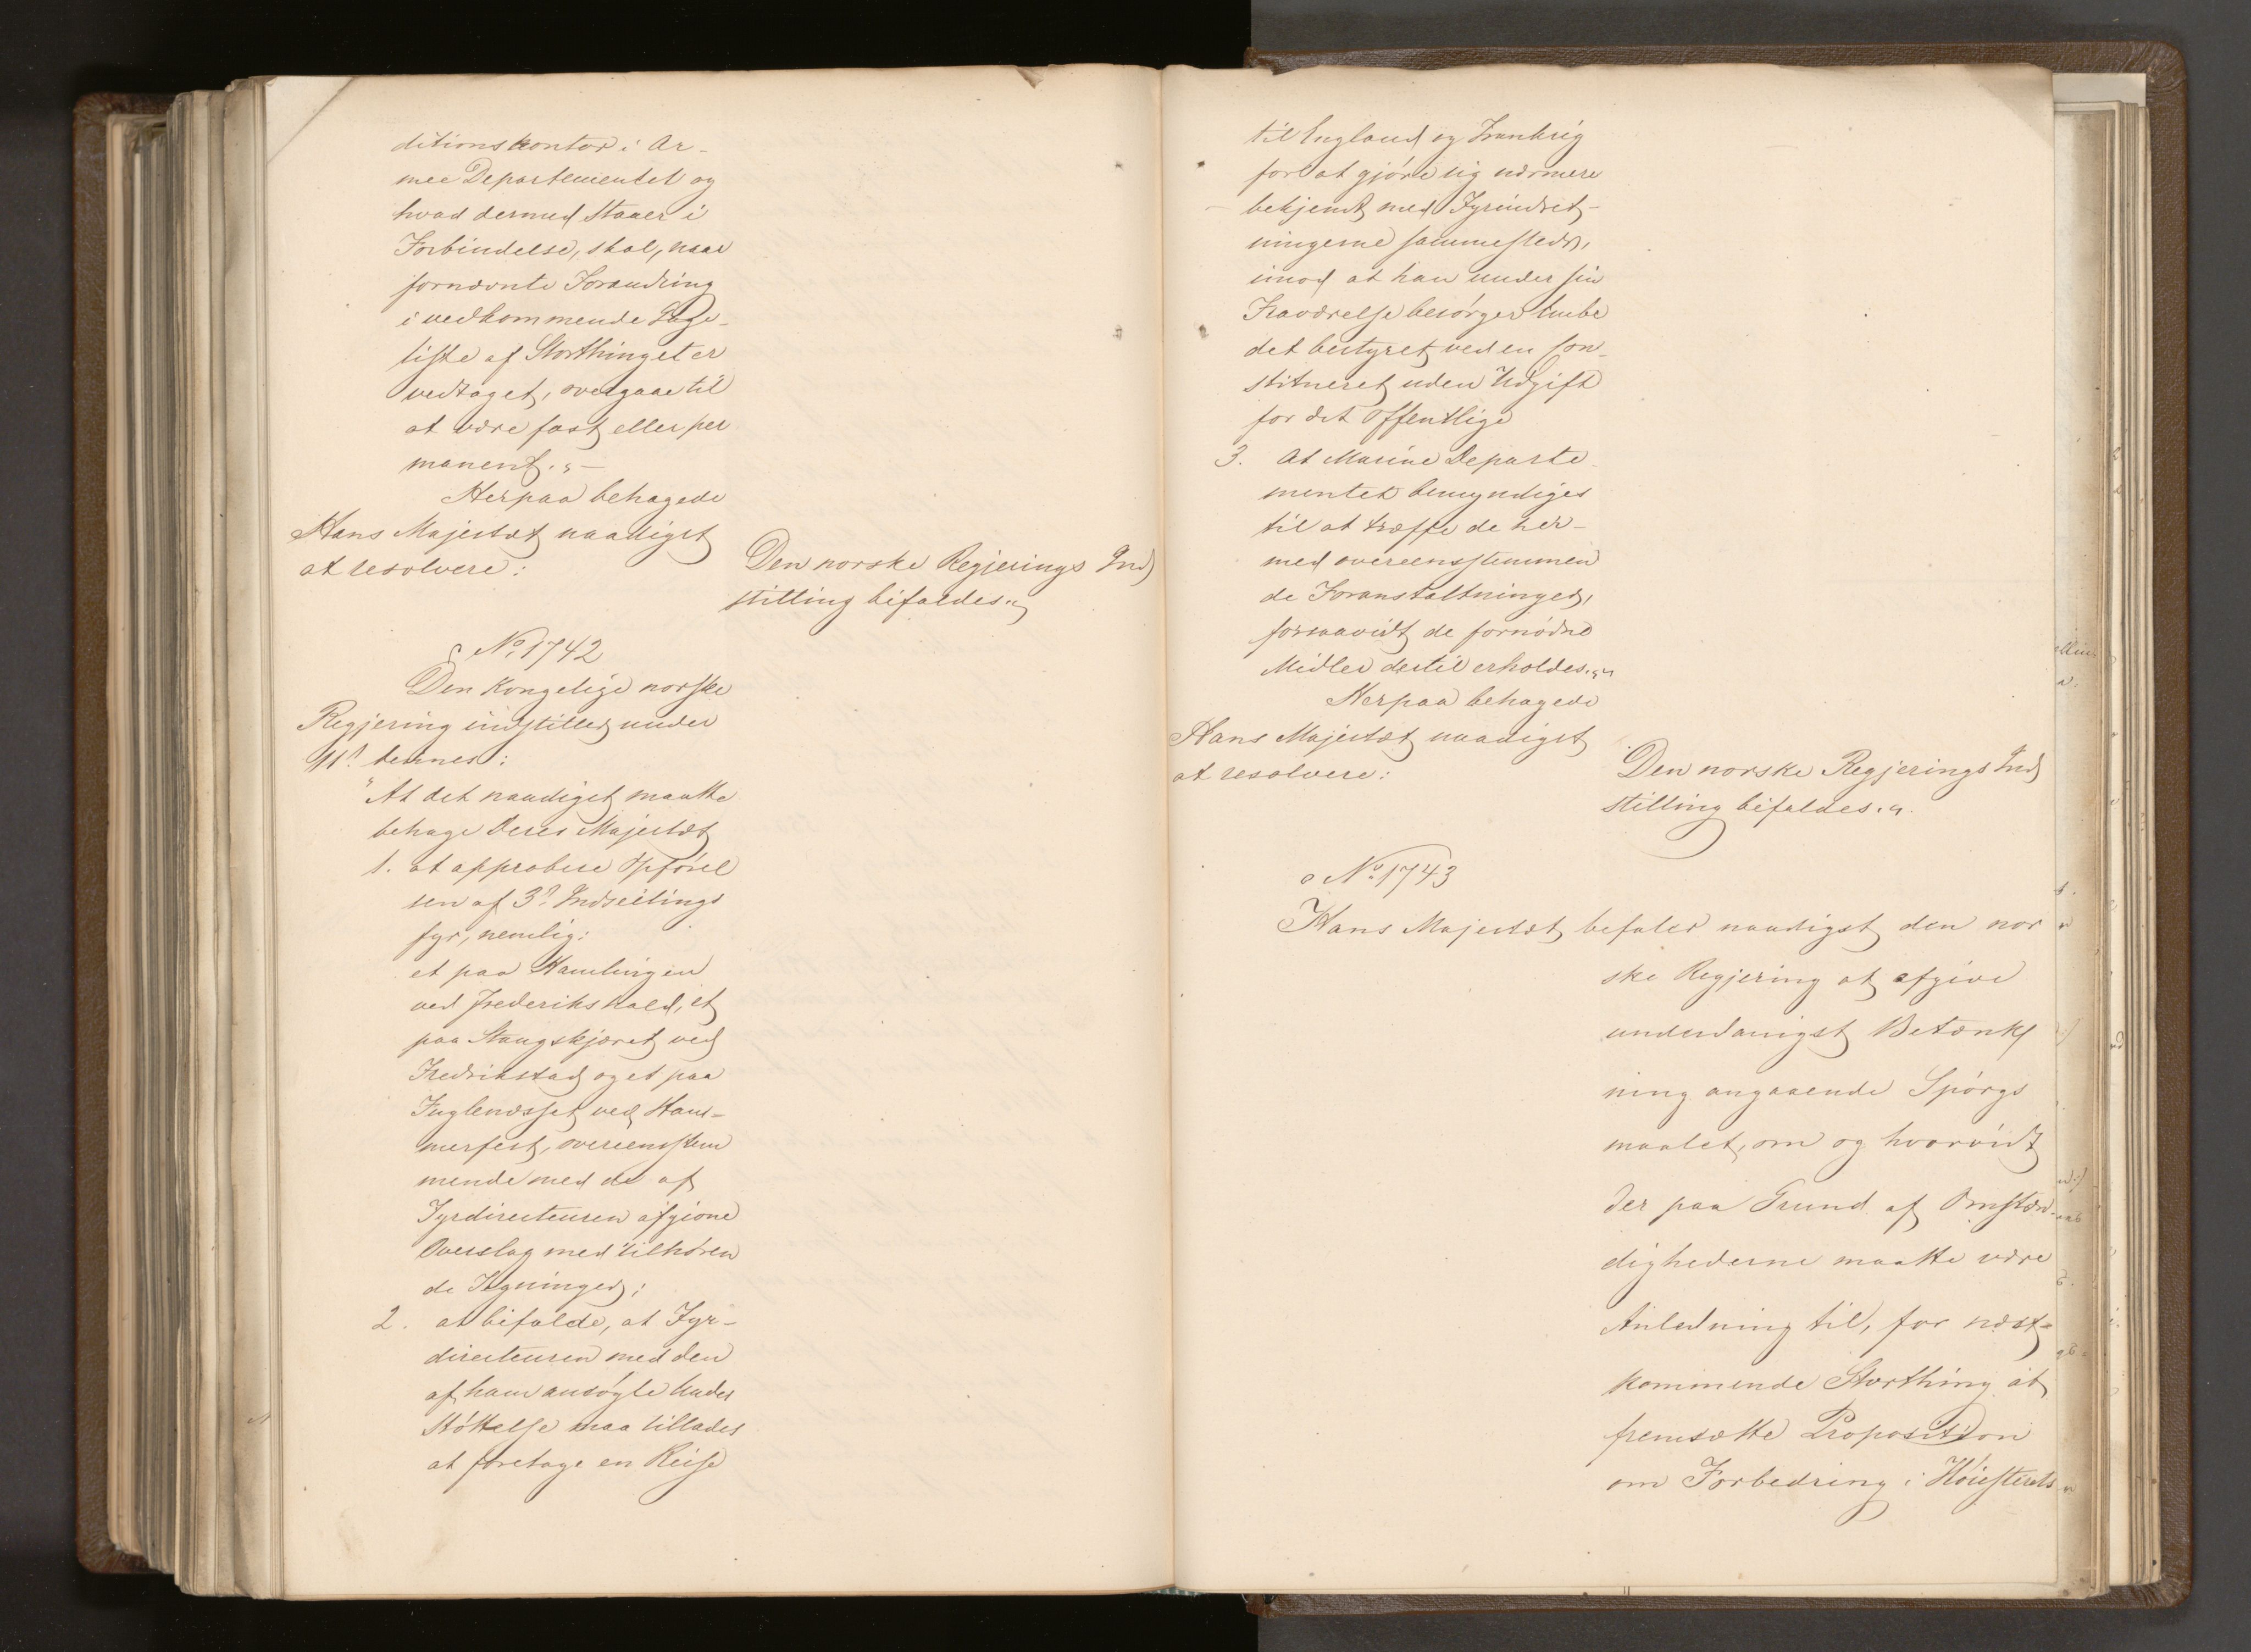 ditionskontor i Ar-
mee Departementet og
hvad dermed staaer i
Forbindelse, skal, naar
fornævnte Forandring
i vedkommende Gage-
liste af Storthinget er
vedtaget, overgaae til
at være fast eller per
manent."-
Herpaa behagede
Hans Majestæt naadigst
at resolvere:
Den norske Regjerings Ind
stilling bifaldes."
No. 1742
Den Kongelige norske
Regjering indstiller under
11t dennes:
"At det naadigst maatte
behage Deres Majestæt
1. at approbere Opførel
sen af 3de Indseilings
fyr, nemlig:
et paa
ved Frederikshald, et
paa Stangskjæret ved
Fredrikstad og et paa
Fuglenæsset ved Ham-
merfest, overeenstem
mende med de af
Fyrdirecteuren afgivne
Overslag med tilhøren
de Tegninger;
2. at bifalde, at Fyr-
directeuren med den
af ham ansøgte Under
støttelse maa tillades
at foretage en Reise
til England og Frankrig
for at gjøre sig nærmere
bekjendt med Fyrindret-
ningerne sammesteds,
imod at han under sin
Fraværelse besørger Embe
det bestyret ved en con-
stitueret uden Udgift
for det Offentlige
3. At Marine Departe
mentet bemyndiges
til at træffe de her-
med overeensstemmen
de Foranstaltninger,
forsaavidt de fornødne
Midler dertil erholdes."
Herpaa behagede
Hans Majestæt naadigst
at resolvere:
Den norske Regjerings Ind
stilling bifaldes."
No. 1743
Hans Majestæt befaler naadigst den nor
ske Regjering at afgive
underdanigst Betænk
ning angaaende Spørgs
maalet, om og hvorvidt
der paa Grund af Omstæn-
dighederne maatte være
Anledning til, for næst-
kommende Storthing at
fremsætte Proposition
om Forbedring i Høiesterets